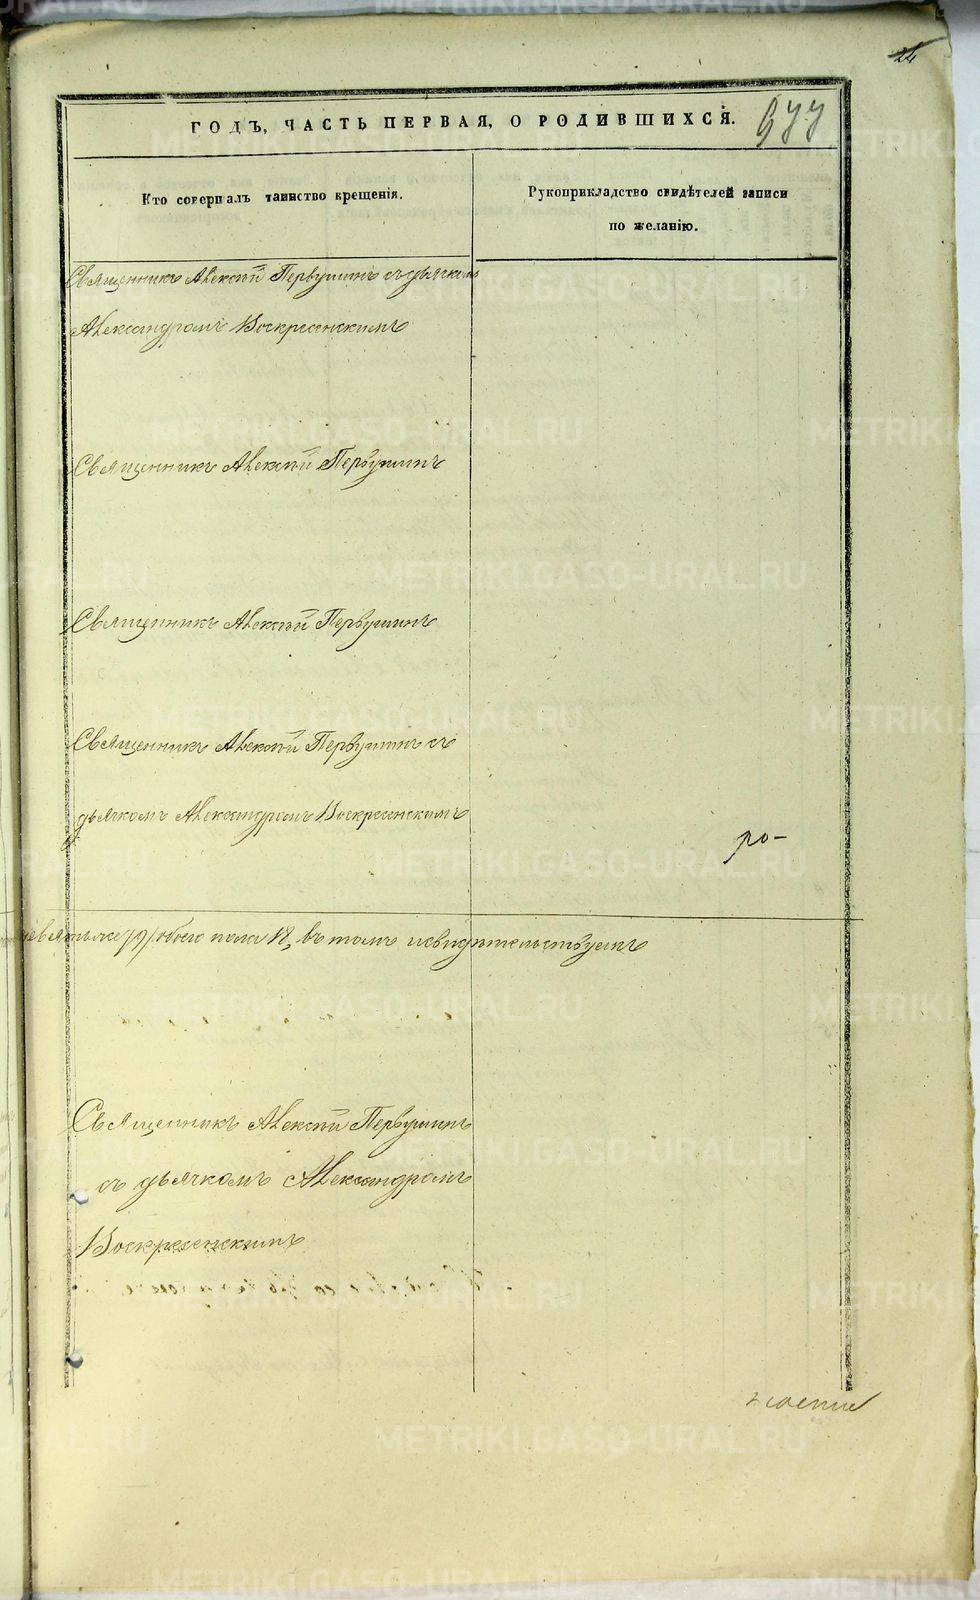 24
ГОДЪ, ЧАСТЬ ПЕРВАЯ, О РОДИВШИХСЯ.
977
Кто совершалъ таинство крещенія.
Рукоприкладство свидѣтелей записи
по желанію.
Священникъ Алексѣй Первушинъ съ дьячкомъ
Александромъ Воскресенскимъ
Священникъ Алексѣй Первушинъ
Священникъ Алексѣй Первушинъ
Священникъ Алексѣй Первушинъ съ
дьячкомъ Александромъ Воскресенскимъ
ро-
/9/ обоего пола 18, въ томъ и свидѣтельствуемъ
Священникъ Алексѣй Первушинъ
съ дьячкомъ Александромъ
Воскресенскимъ
METRIKI.GASO-URAL.RU